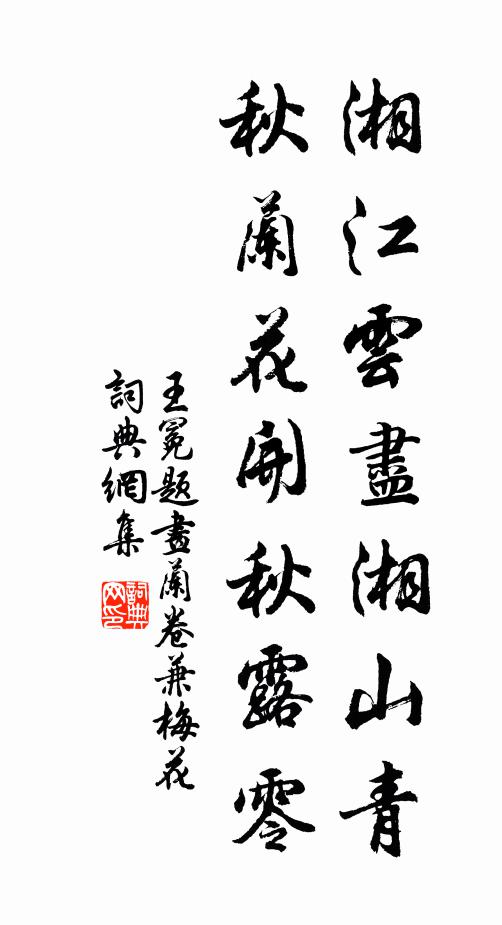 湘江雲盡湘山青
秋蘭花開秋露零
王冕題畫蘭卷兼梅花
詞典網集
詞典網印